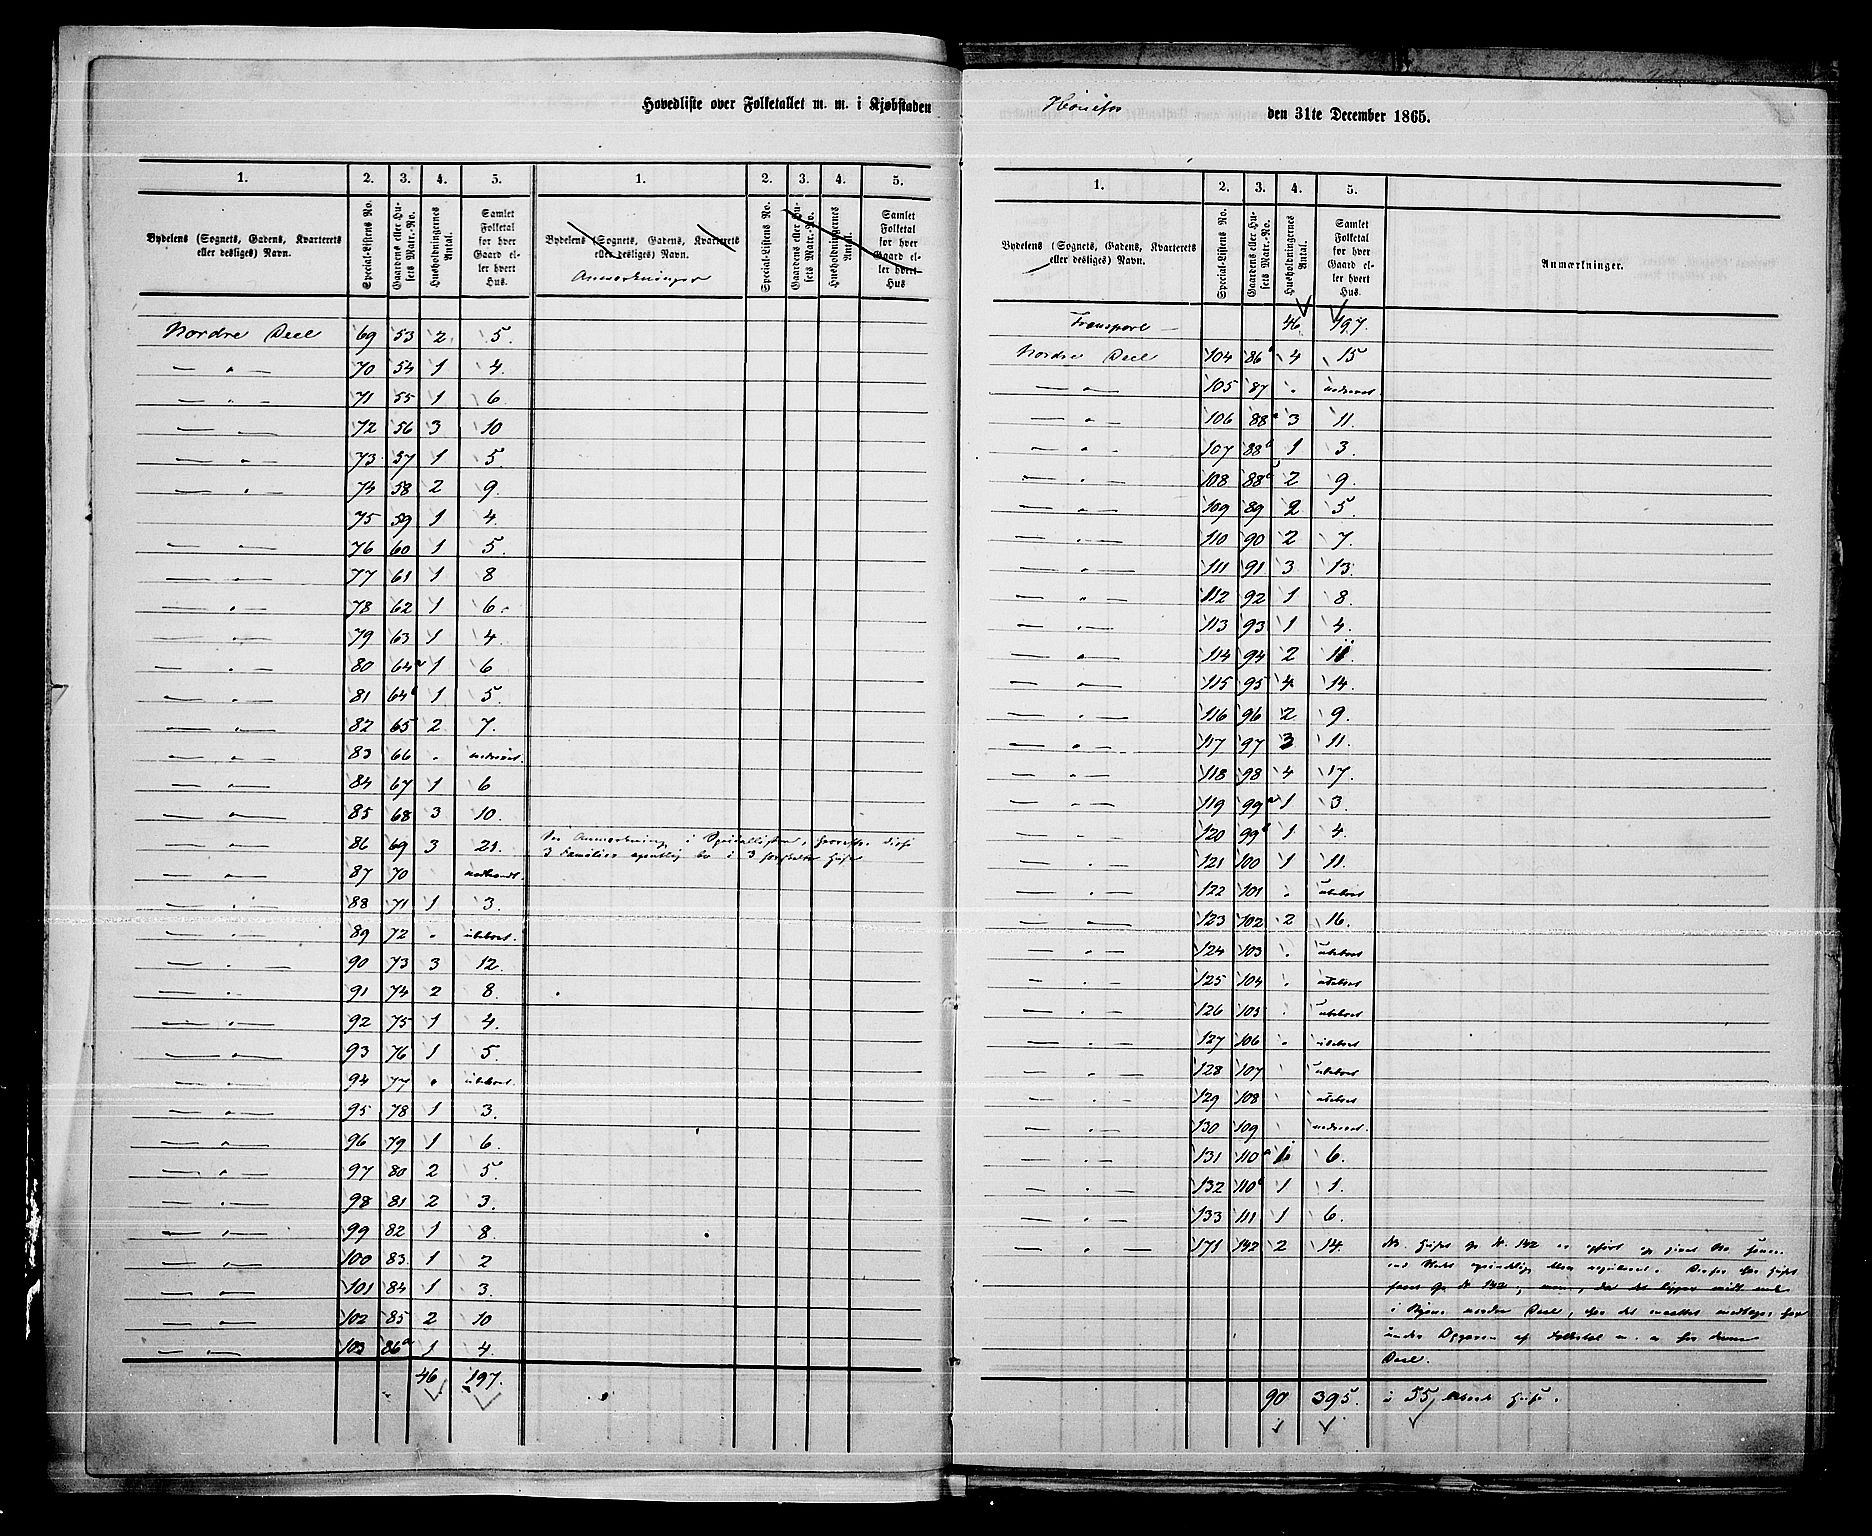 Hovedliste over Folketallet m. m. i Kjøbstaden Hönefos den 31te December 1865.
1. 2. 3. 4. 5. 1. 2. 3. 4. 5.
Bydelens (Sognets, Gadens, Kvarterets eller desliges) Navn. Special-Listens No. Gaardens eller Husets Matr.-No. Husholdningernes Antal. Samlet Folketal for hver Gaard eller hvert Hus.
Bydelens (Sognets, Gadens, Kvarterets eller desliges) Navn. Special-Listens No. Gaardens eller Husets Matr.-No. Husholdningernes Antal. Samlet Folketal for hver Gaard eller hvert Hus
Anmærkninger
Nordre Deel 69 53 2 5.
— " — 70 54 1 4.
— " — 71 55 1 6.
— " — 72 56 3 10
— " — 73 57 1 5.
— " — 74 58 2 9.
75 59 1 4.
— " — 76 60 1 5.
— " — 77 61 1 8
— " — 78 62 1 6.
— " — 79 63 1 4.
— " — 80 64a 1 6
— " — 81 64b 1 5.
— " — 82 65 2 7.
— " — 83 66 . nedrevet.
— " — 84 67 1 6
— " — 85 68 3 10.
— " — 86 69 3 21. Anmærkning i Speciallisten, disse
3 Familier egentlig bo i 3 Huse
— " — 87 70 nedbrændt.
— " — 88 71 1 3.
— " — 89 72 . ubeboet.
— " — 90 73 3 12.
— " — 91 74 2 8.
— " — 92 75 1 4.
— " — 93 76 1 5.
— " — 94 77 . ubeboet.
— " — 95 78 1 3.
— " — 96 79 1 6.
— " — 97 80 2 5
— " — 98 81 2 3.
— " — 99 82 1 8.
— " — 100 83. 1 2
— " — 101 84 1 3.
— " — 102 85 2 10
— " — 103 86a 1 4.
46 197.
1. 2. 3. 4. 5.
Bydelens (Sognets, Gadens, Kvarterets eller desliges) Navn. Special-Listens No. Gaardens eller Husets Matr.-No. Husholdningernes Antal. Samlet Folketal for hver Gaard eller hvert Hus. Anmærkninger.
Transport — 46 197.
Nordre Deel 104 86b 4 15
— " — 105 87 . nedrevet.
— " — 106 88a 3 11.
— " — 107 88b 1 3.
— " — 108 88c 2 9.
— " — 109 89 2 5.
— " — 110 90 2 7.
— " — 111 91 3 13.
— " — 112 92 1 8.
— " — 113 93 1 4.
— " — 114 94 2 11.
— " — 115 95 4 14.
— " — 116 96 2 9.
— " — 117 97 3 11.
— " — 118 98 4 17.
— " — 119 99a 1 3.
— " — 120 99b 1 4.
— " — 121 100 1 11.
— " — 122 101 . ubeboet
— " — 123 102 2 16.
— " — 124 103 . ubeboet
— " — 125 104 . ubeboet
— " — 126 105 . ubeboet
— " — 127 106 . ubeboet
— " — 128 107 . ubeboet
— " — 129 108 . ubeboet
— " — 130 109 . nedrevet.
— " — 131 110a 1 6.
— " — 132 110b 1 1.
— " — 133 111 1 6.
— " — 171 142 2 14. NB. Huset No 142 er opført
Huset
No 142, men, da det ligger
i Byens nordre Deel, er det medtaget her
under Opgaven af Folketal m. m. for denne
Deel.
90 395. i 55 Huse.